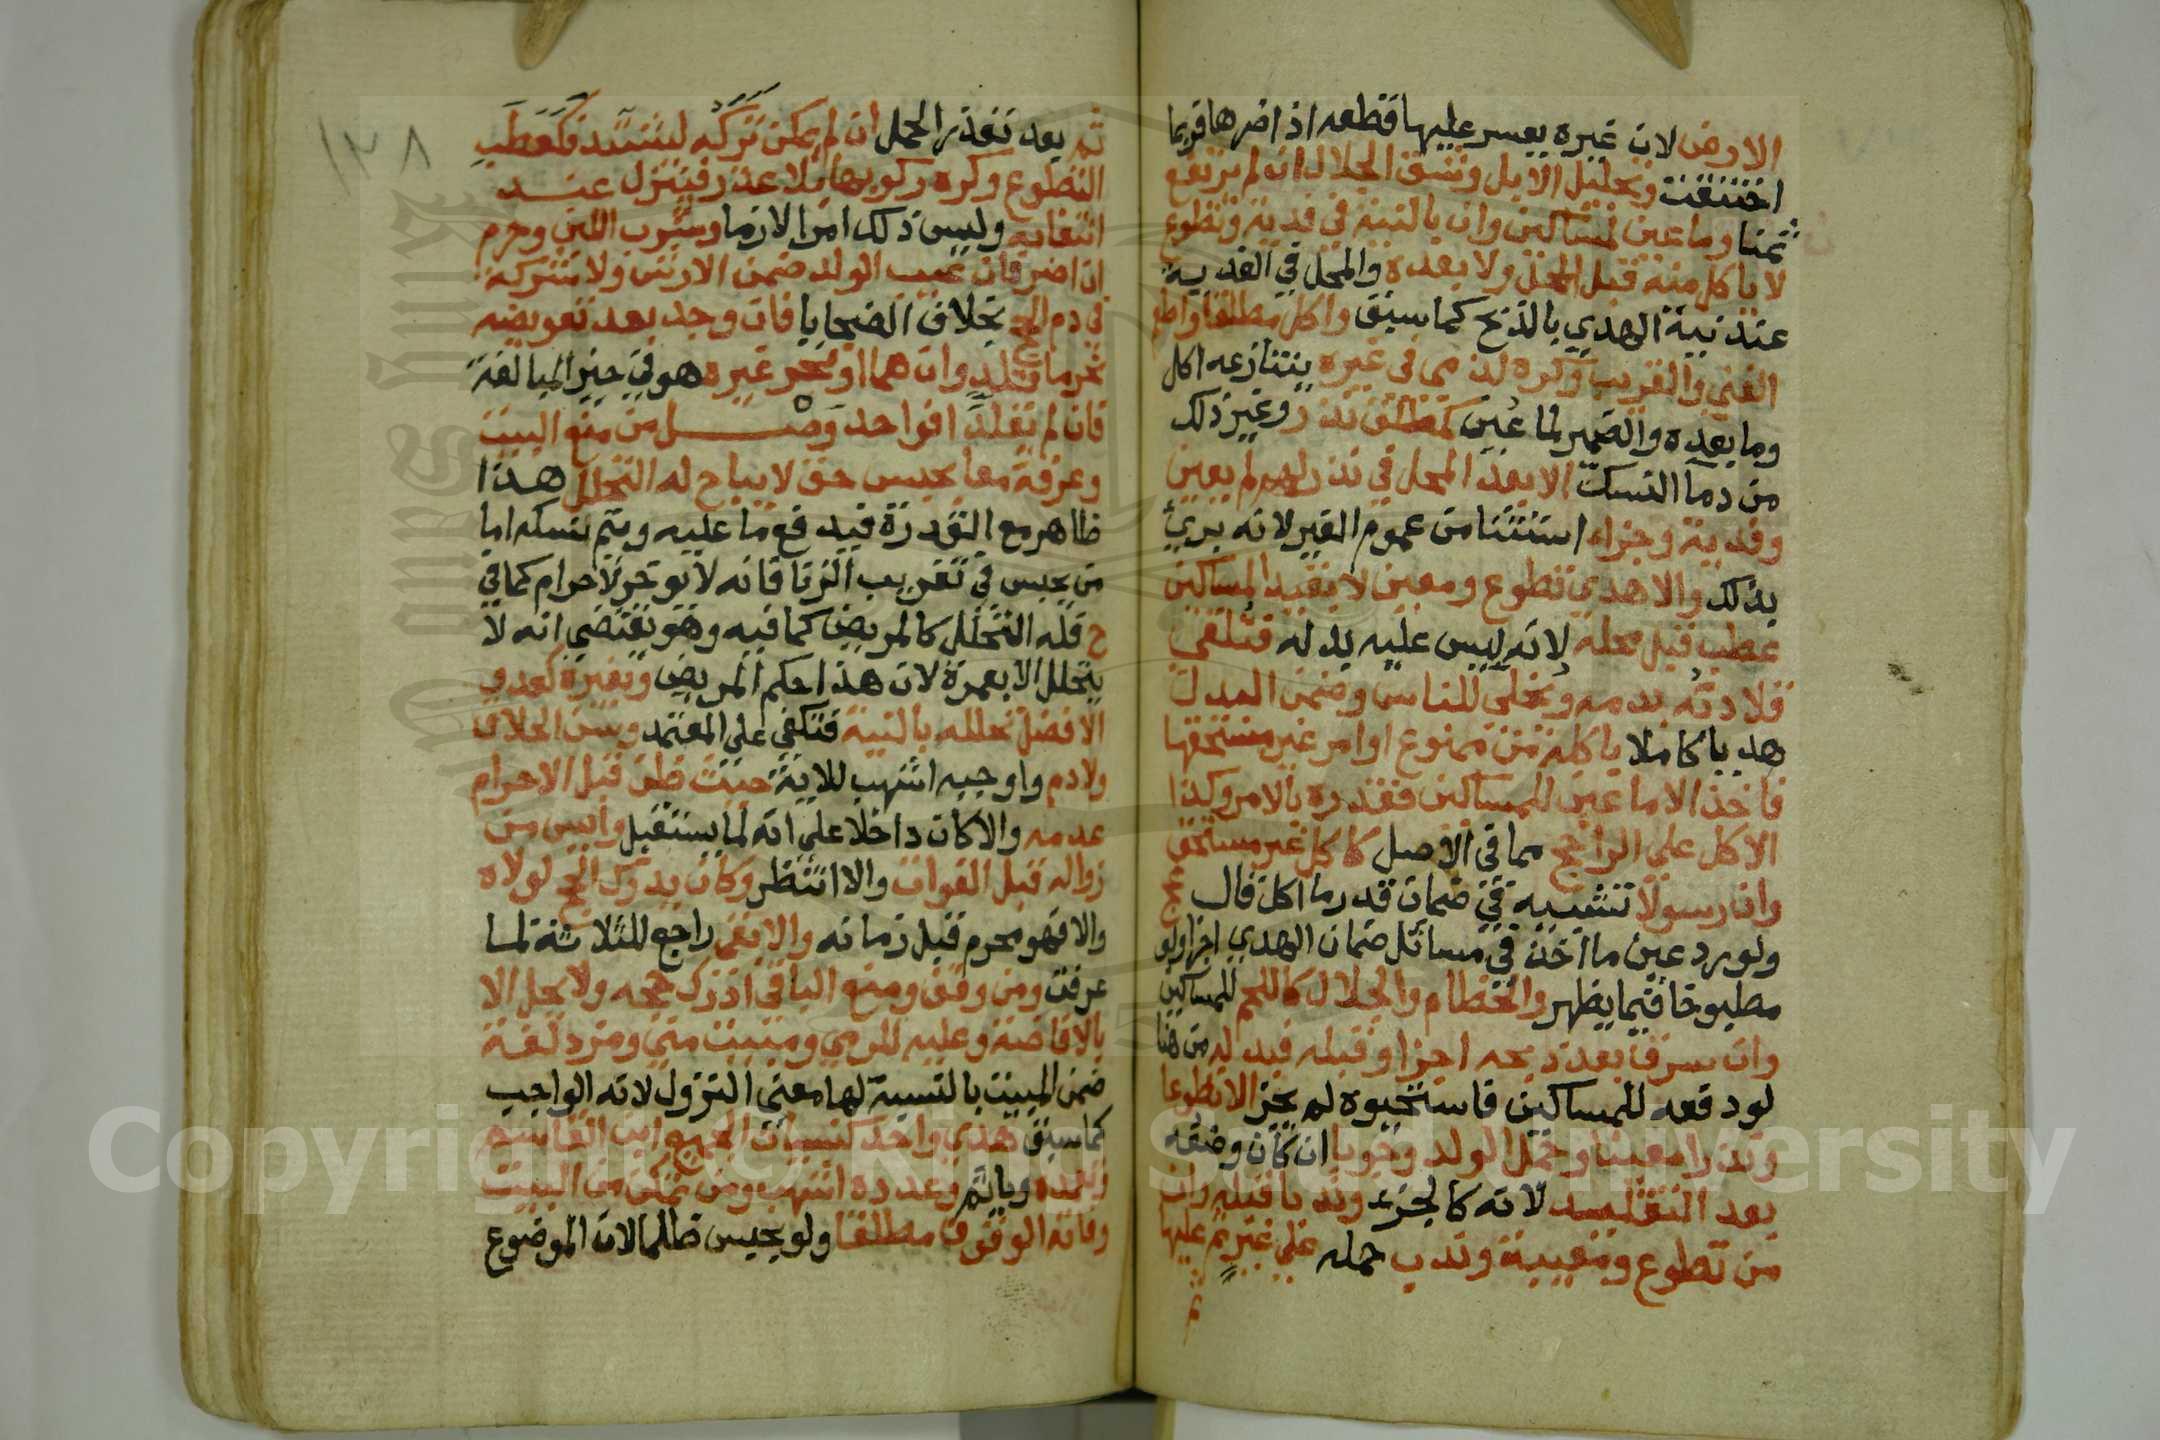 الارض لان غيره يعسر عليها قطعه اذا ضرها فربما
اختنقت وتجليل الابل وشق الجلال ان لم ترتفع
ثمنا وما عين لمساكين وان بالنية في فدية وتطوع
لا ياكل منه قبل المحل ولا بعده والمحل في الفدية
عند نية الهدي بالذبح كما سبق واكل مطلقا واطعم
الغني والقريب وكره لذمي في غيره يتنازعه اكل
وما بعده والضمير لما عين كمطلق نذر وغير ذلك
من دما النسك الا بعد المحل في نذر لهم لم يعين
وفدية وجزاء استثنا من عموم الغير لانه بريء
بذلك والا هدي تطوع ومعين لا بقيد المساكين
عطب قبل محله لانه ليس عليه بدله فتلقى
قلادته بدمه ويخلى للناس وضمن المبدل
هديا كاملا ياكله من ممنوع او امر غير مستحقها
فاخذ الا ما عين للمساكين فقدره بالامر وكذا
الاكل على الراجح مما في الاصل كاكل غير مستحق
وان رسولا تشبيه في ضمان قدر ما اكل قال عج
ولو رد عين ما اخذ في مسائل ضمان الهدي اجزا ولو
مطبوخا فيما يظهر والخطام والجلال كاللحم للمساكين
وان سرق بعد ذبحه اجزا وقبله فبدله من هنا
لو دفعه للمساكين فاستحيوه لم يجز الا تطوعا
ونذرا معينا وحمل الولد وجوبا ان كان وضعه
بعد التقليد لانه كالجزء وندبا قبله وان
من تطوع وتعيينه وندب حمله على غير ثم عليها
ثم
ثم بعد تعذر الحمل ان لم يمكن تركه ليشتد فكعطب
التطوع وكره ركوبها بلا عذر فينزل عند
انتفايه وليس ذلك امرا لازما وشرب اللبن وحرم
ان اضر فان عيب الولد ضمن الارش ولا شركة
في دم الحج بخلاف الضحايا فان وجد بعد تعويضه
نحر ما قلد وان هما او نحر غيره هو في حيز المبالغة
فان لم يقلدا فواحد وصل من منع البيت
وعرفة معا بحبس حق لا يباح له التحلل هذا
ظاهر مع القدرة فيدفع ما عليه ويتم نسكه اما
من يحبس في تغريب الزنا فانه لا يوخر لاحرام كما في
ح فله التحلل كالمريض كما فيه وهو يقتضي انه لا
يتحلل الا بعمرة لان هذا حكم المريض وبغيره كعدو
الافضل تحلله بالنية فتكفي على المعتمد وسن الحلاق
ولا دم واوجبه اشهب للاية حيث ظن قبل الاحرام
عدمه والا كان داخلا على انه لما يستقبل وايس من
زواله قبل الفوات والا انتظر وكان يدرك الحج لولاه
والا فهو محرم قبل زمانه والا بقي راجع للثلاثة لما
عرفت ومن وقف ومنع الباقي ادرك حجه ولا يحل الا
بالافاضة وعليه للرمي ومبيت منى ومزدلفة
ضمن المبيت بالنسبة لها معنى النزول لانه الواجب
كما سبق هدي واحد كنسيان الجميع ابن القاسم
وتعمده وبالتم وعدده اشهب ومن تمكن من البيت
وفاته الوقوف مطلقا ولو بحبس ظلما لان الموضوع
١٣٨
Copyright © King Saud University
King Saud University